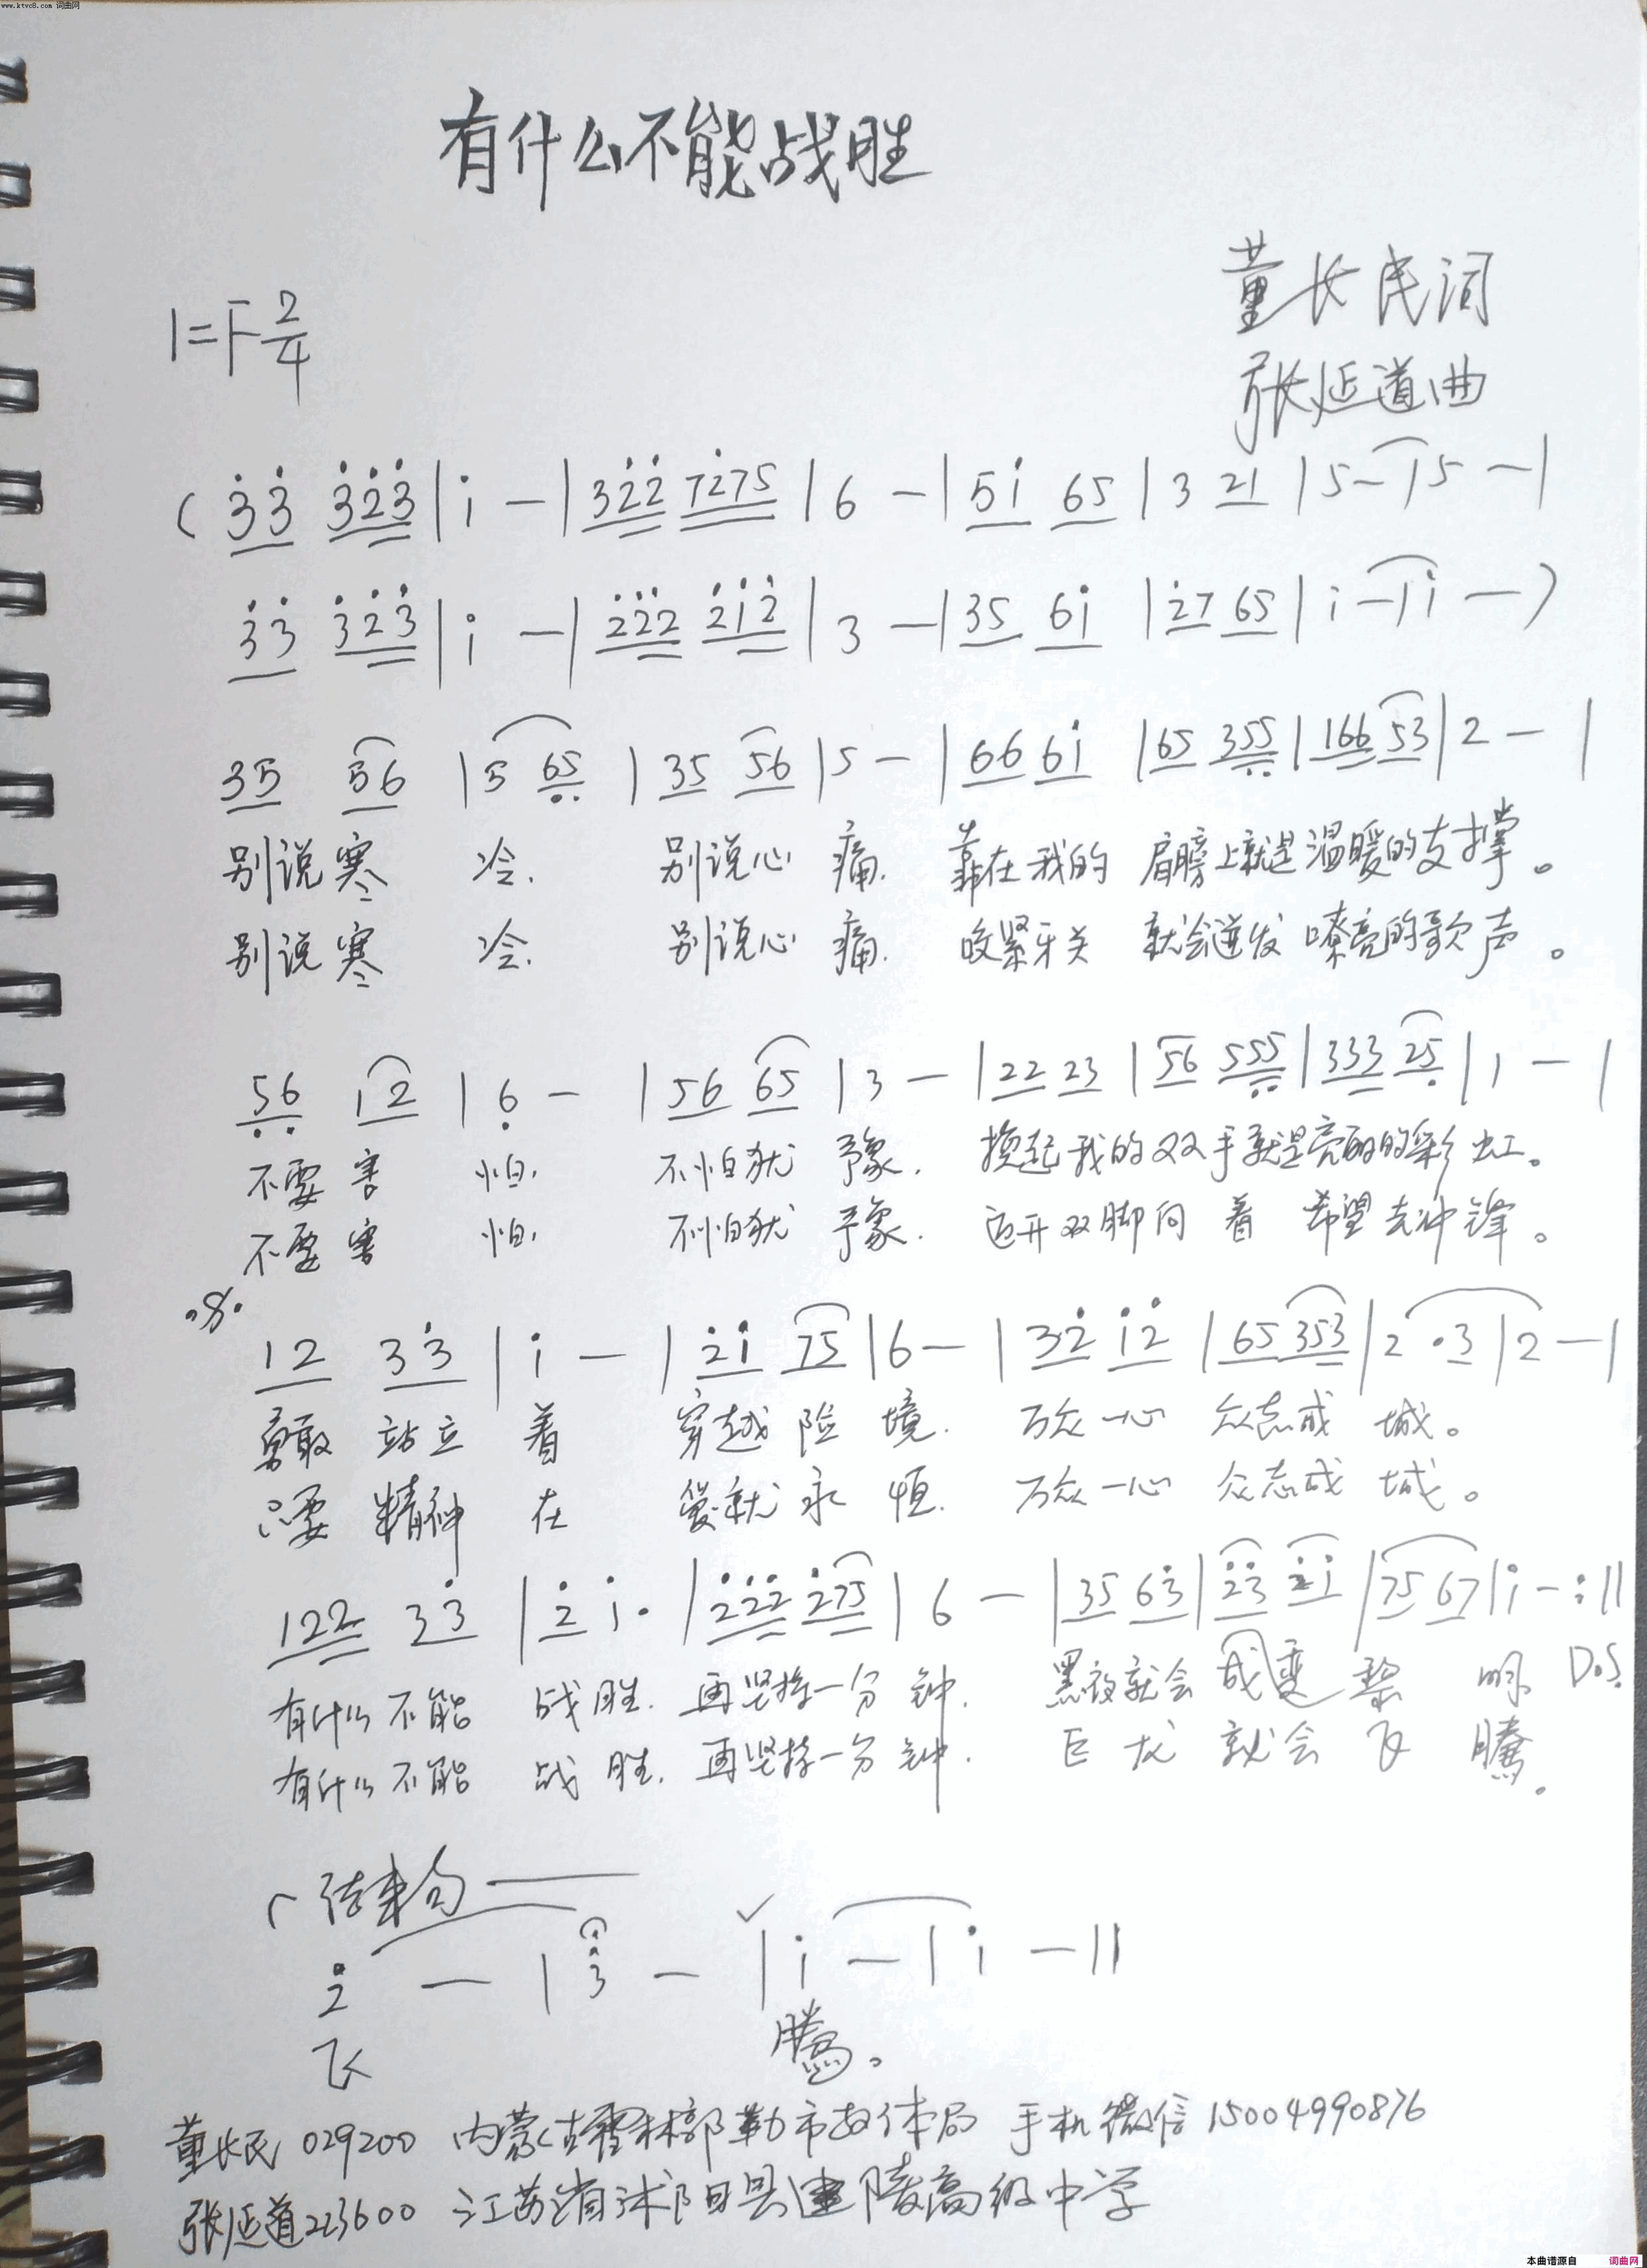 www.ktvc8.com 词曲网
有什么不能战胜
董长民词
1=F 2/4
张延道曲
( 3̇3̇ 3̇2̇3̇ | i - | 32̇2̇ 72̇75 | 6 - | 5i 65 | 3 21 | 5 - | 5 - |
3̇3̇ 3̇2̇3̇ | i - | 2̇2̇2̇ 2̇i2̇ | 3 - | 35 6i | 2̇7 65 | i - | i - )
35 56 | 5 6̣5̣ | 35 56 | 5 - | 66 6i | 65 35̣5̣ | 166 53 | 2 - |
别说寒 冷. 别说心 痛. 靠在我的 肩膀上就是温暖的支撑。
别说寒 冷. 别说心 痛. 咬紧牙关 就会迸发 嘹亮的歌声。
5̣6̣ 12 | 6̣ - | 56 65 | 3 - | 22 23 | 56 55̣5̣ | 333 25̣ | 1 - |
不要害 怕. 不怕犹 豫. 挽起我的双手就是亮丽的彩虹。
不要害 怕. 不怕犹 豫. 迈开双脚向 着 希望去冲锋。
12 33̇ | i - | 2̇i 75 | 6 - | 32̇ i2̇ | 65 353 | 2 ·3 | 2 - |
勇敢 站立 着 穿越险 境. 万众一心 众志成 城。
只要 精神 在 爱就永 恒. 万众一心 众志成 城。
122 33̇ | 2̇ i· | 2̇2̇2̇ 2̇75 | 6 - | 35 63̇ | 2̇3̇ 2̇i | 75 67 | i - :||
有什么不能 战胜. 再坚持一分 钟. 黑夜就会 成变 黎 明. D.S.
有什么不能 战胜. 再坚持一分 钟. 巨龙 就会 飞 腾.
结束句
2̇ - | 3̇ - | i - | i - ||
飞 腾。
董长民 029200 内蒙古霍林郭勒市教体局 手机微信 15004990876
张延道 223600 江苏省沭阳县建陵高级中学
本曲谱源自 词曲网